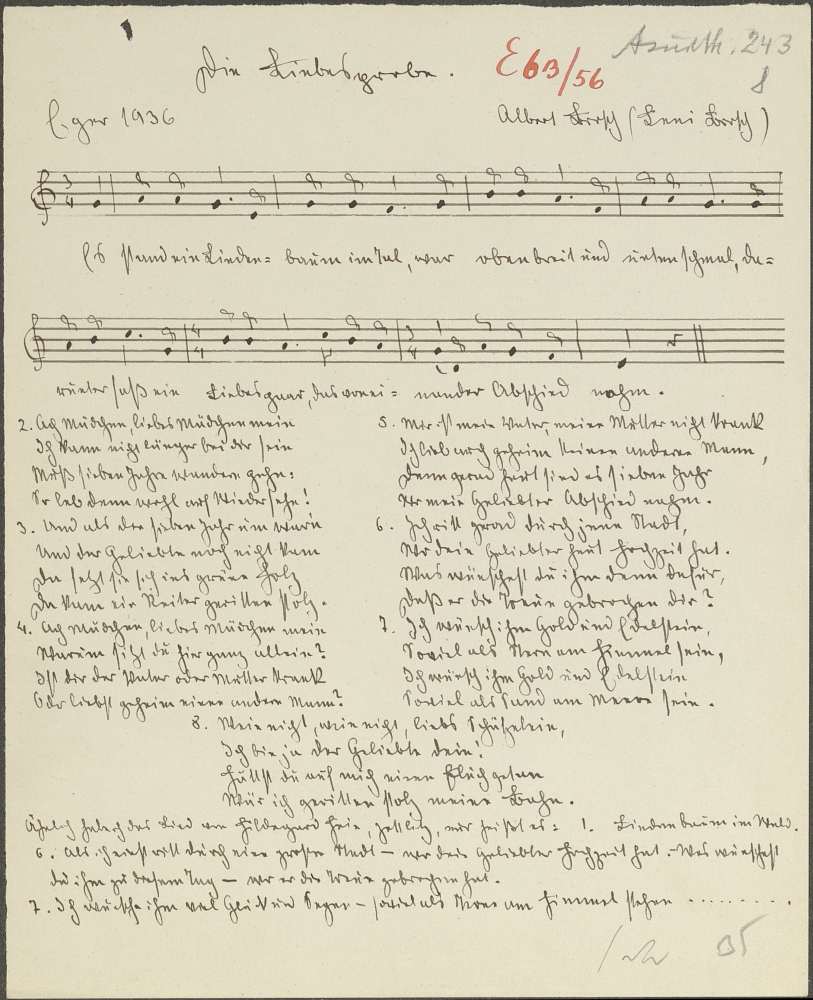 Asudth. 243
E 63/56
8
Die Liebesprobe.
Eger 1936
Albert Brosch (Leni Brosch)
3 4
Es stand ein Linden= baum im Tal, war oben breit und unten schmal, da=
4 4 3 4
runter saß ein Liebespaar, das vonei= nander Abschied nahm.
2. Ach Mädchen, liebes Mädchen mein
Ich kann nicht länger bei dir sein
Muß sieben Jahre wandern gehn:
So leb denn wohl auf Wiedersehn!
3. Und als die sieben Jahr um warn
Und der Geliebte noch nicht kam
Da setzt sie sich ins grüne Holz
Da kam ein Reiter geritten stolz.
4. Ach Mädchen, liebes Mädchen mein
Warum sitzt du hier ganz allein?
Ist dir der Vater oder Mutter krank
Oder liebst geheim einen andern Mann?
5. Mir ist mein Vater, meine Mutter nicht krank
Ich lieb auch geheim keinen anderen Mann,
Denn gerad heut sind es sieben Jahr
Wo mein Geliebter Abschied nahm.
6. Ich ritt gerad durch jene Stadt,
Wo dein Geliebter heut Hochzeit hat.
Was wünschest du ihm denn dafür,
Daß er die Treue gebrochen dir?
7. Ich wünsch ihm Gold und Edelstein,
Soviel als Stern am Himmel sein,
Ich wünsch ihm Gold und Edelstein
Soviel als Sand am Meere sein.
8. Wein nicht, wein nicht, liebs Schätzelein,
Ich bin ja der Geliebte dein!
Hättst du auf mich einen Fluch getan
Wär ich geritten stolz meine Bahn.
Ähnlich habe ich das Lied von Hildegard Hein, Zettlitz, nur heißt es: 1. Lindenbaum im Wald.
6. Als ich einst ritt durch eine große Stadt – wo dein Geliebter Hochzeit hat. Was wünschest
du ihm zu diesem Tag – wo er die Treue gebrochen hat.
7. Ich wünsche ihm viel Glück und Segen – soviel als Sterne am Himmel stehen .........